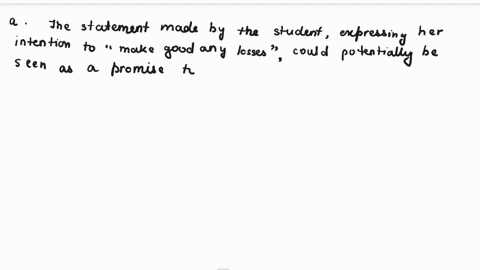 a. The statement made by the student, expressing her
intention to "make good any losses", could potentially be
seen as a promise t